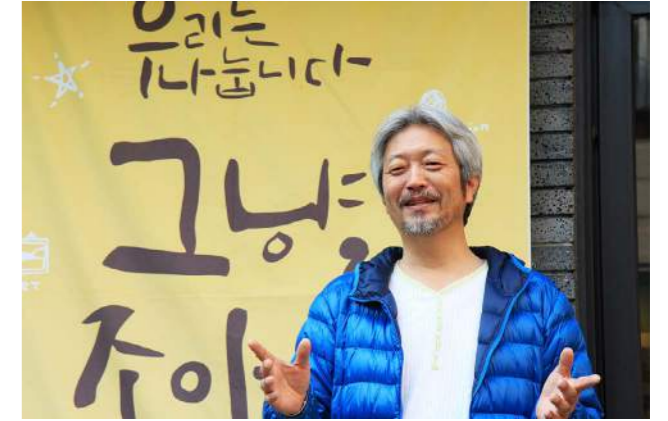 우리는
나눕니다
그냥
조아